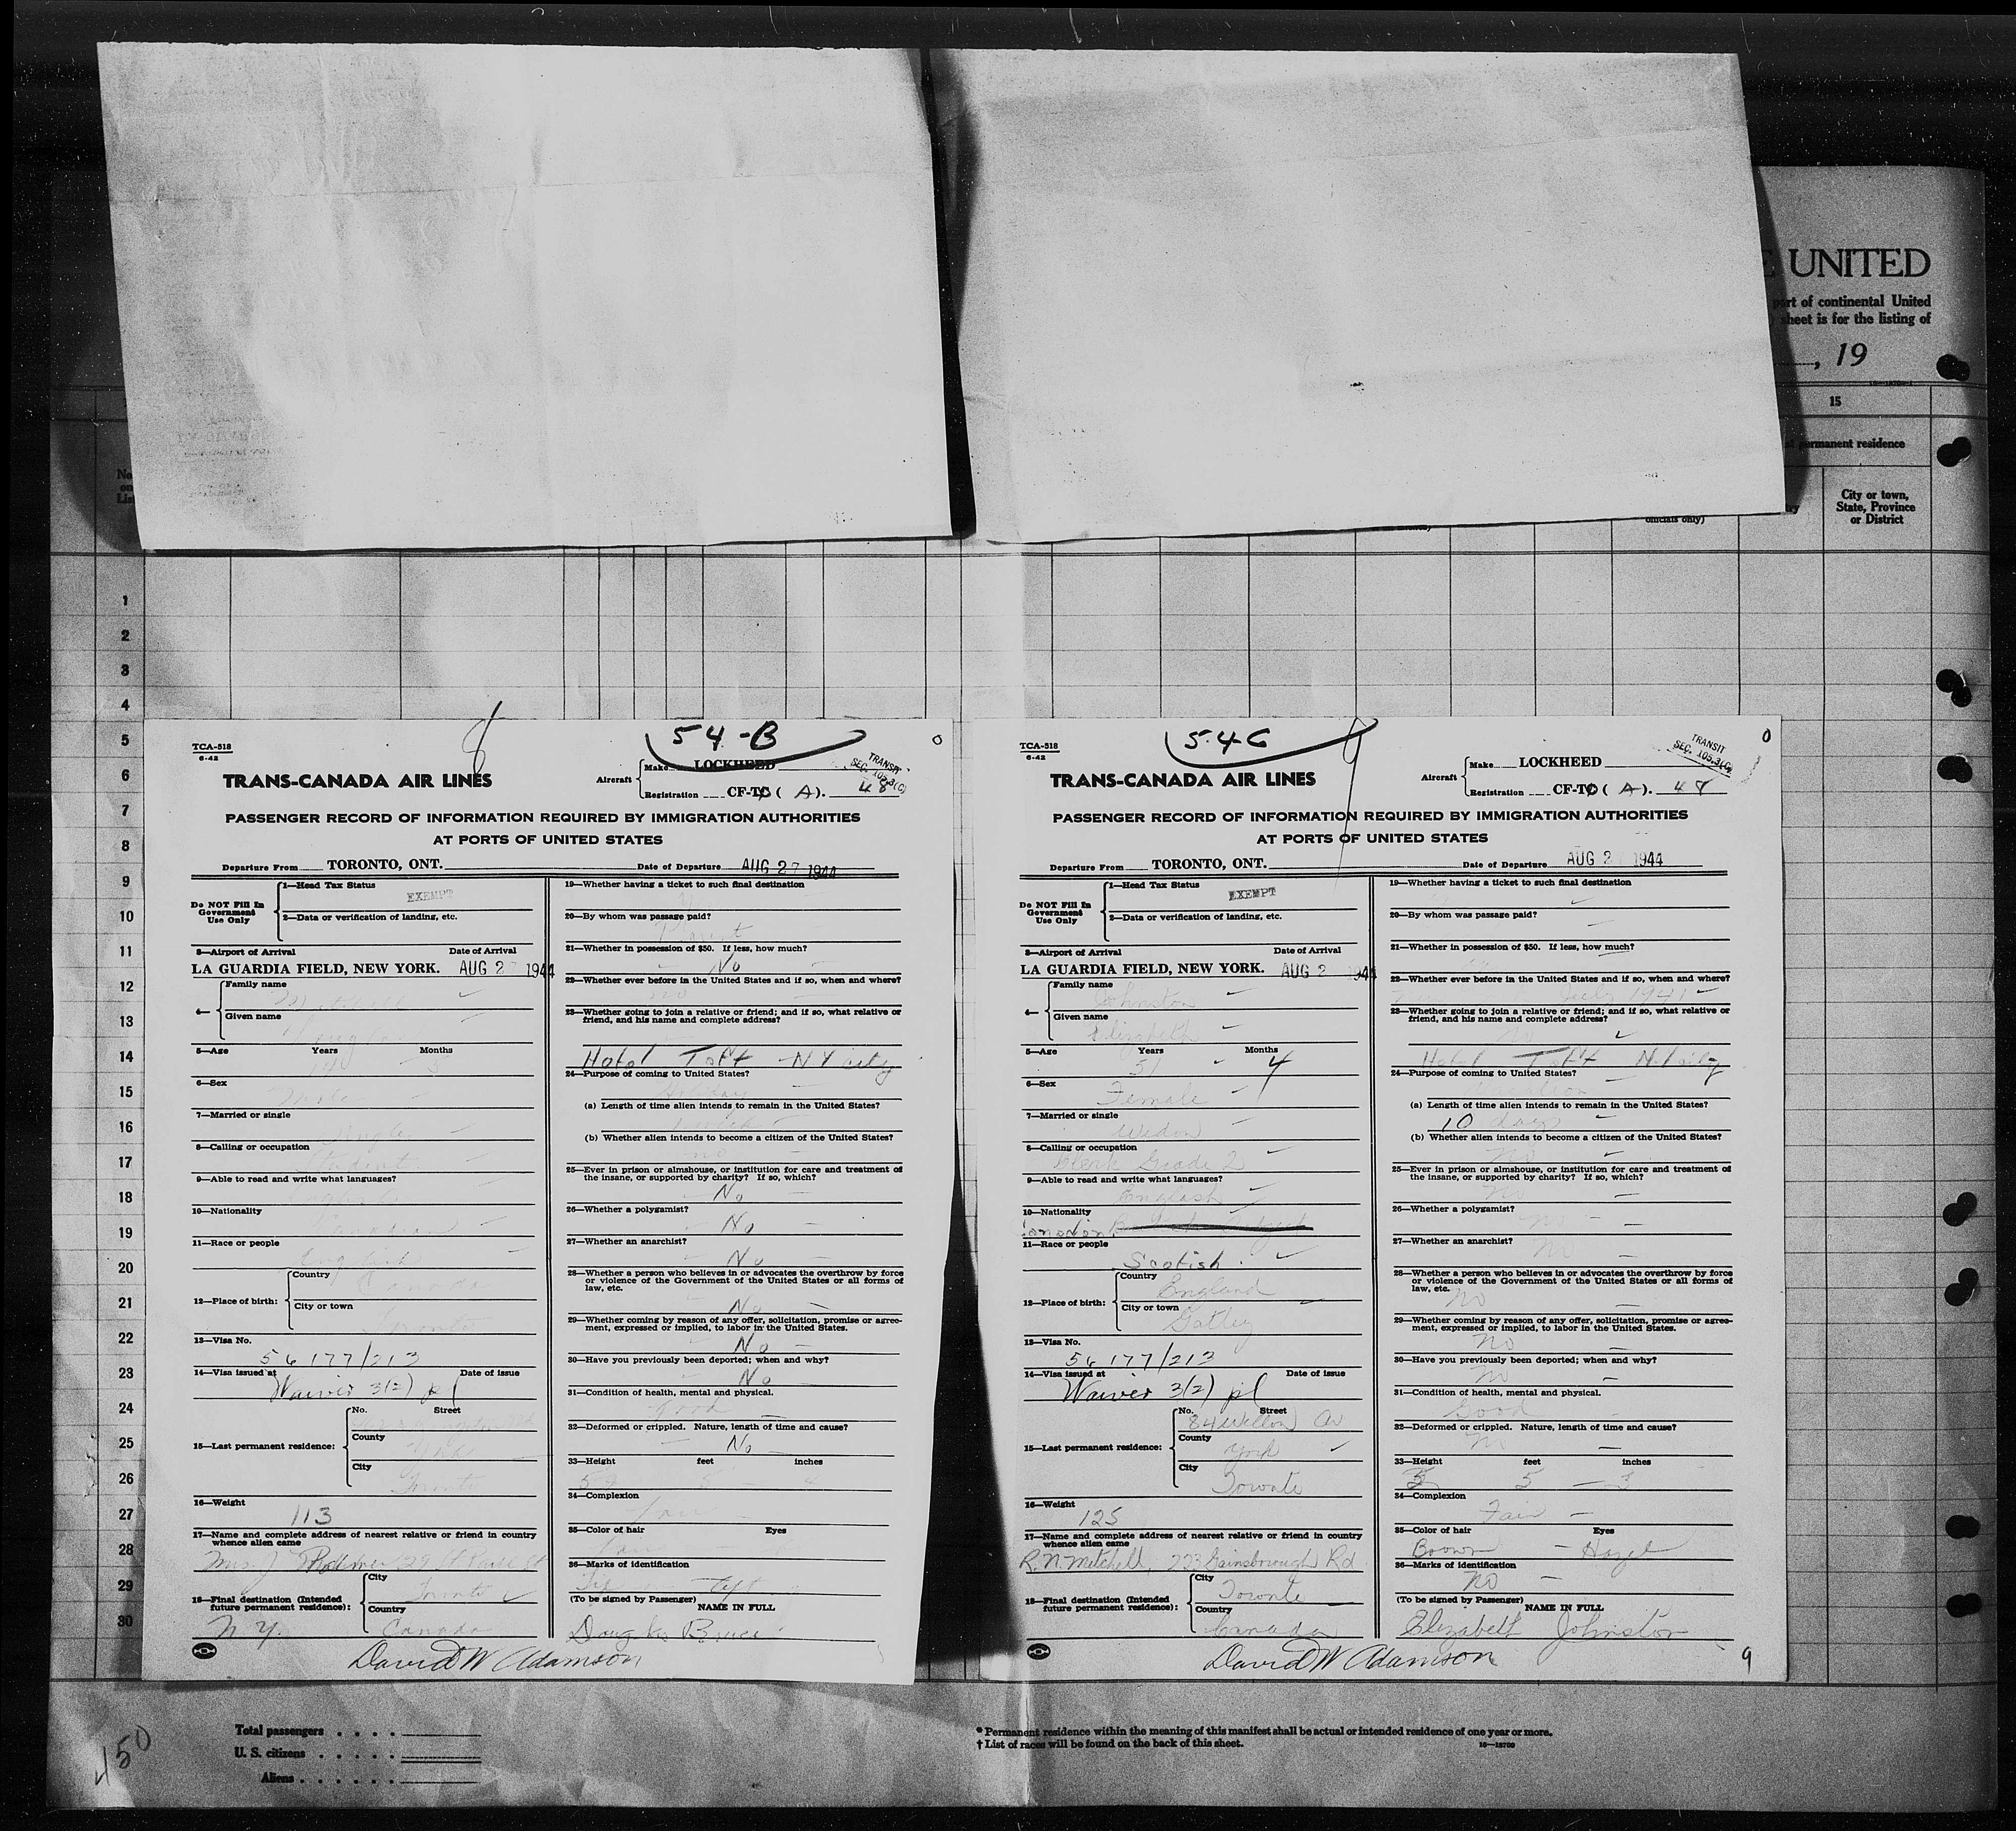 E UNITED
port of continental United
sheet is for the listing of
, 19
15
permanent residence
City or town,
State, Province
or District
officials only)
No
on
List
1
2
3
4
5
6
7
8
9
10
11
12
13
14
15
16
17
18
19
20
21
22
23
24
25
26
27
28
29
30
54-B
8
TCA-518
6-42
TRANS-CANADA AIR LINES
Aircraft
Make LOCKHEED
Registration CF-TC ( A ). 48
TRANSIT
SEC. 105.3(C)
PASSENGER RECORD OF INFORMATION REQUIRED BY IMMIGRATION AUTHORITIES
AT PORTS OF UNITED STATES
Departure From TORONTO, ONT. Date of Departure AUG 27 1944
Do NOT Fill In
Government
Use Only
1—Head Tax Status EXEMPT
2—Data or verification of landing, etc.
3—Airport of Arrival Date of Arrival
LA GUARDIA FIELD, NEW YORK. AUG 2 1944
4—
Family name
Given name
5—Age Years Months
6—Sex
Male
7—Married or single
Single
8—Calling or occupation
Student
9—Able to read and write what languages?
10—Nationality
Canadian
11—Race or people
English
12—Place of birth:
Country
Canada
City or town
Toronto
13—Visa No.
56177/213
14—Visa issued at Date of issue
Waiver 3(2) pl
15—Last permanent residence:
No. Street
County
York
City
Toronto
16—Weight
113
17—Name and complete address of nearest relative or friend in country
whence alien came
Mrs. J
18—Final destination (Intended
future permanent residence):
N.Y.
City
Toronto
Country
Canada
19—Whether having a ticket to such final destination
20—By whom was passage paid?
Parent
21—Whether in possession of $50. If less, how much?
No
22—Whether ever before in the United States and if so, when and where?
no
23—Whether going to join a relative or friend; and if so, what relative or
friend, and his name and complete address?
Hotel Taft N Y city
24—Purpose of coming to United States?
Holiday
(a) Length of time alien intends to remain in the United States?
1 week
(b) Whether alien intends to become a citizen of the United States?
no
25—Ever in prison or almshouse, or institution for care and treatment of
the insane, or supported by charity? If so, which?
No
26—Whether a polygamist?
No
27—Whether an anarchist?
No
28—Whether a person who believes in or advocates the overthrow by force
or violence of the Government of the United States or all forms of
law, etc.
No
29—Whether coming by reason of any offer, solicitation, promise or agree-
ment, expressed or implied, to labor in the United States.
No
30—Have you previously been deported; when and why?
No
31—Condition of health, mental and physical.
Good
32—Deformed or crippled. Nature, length of time and cause?
No
33—Height feet inches
34—Complexion
Fair
35—Color of hair Eyes
Fair
36—Marks of identification
(To be signed by Passenger) NAME IN FULL
Douglas Bruce
David W Adamson
54-C
9
TCA-518
6-42
TRANS-CANADA AIR LINES
Aircraft
Make LOCKHEED
Registration CF-TC ( A ). 48
TRANSIT
SEC. 105.3(C)
PASSENGER RECORD OF INFORMATION REQUIRED BY IMMIGRATION AUTHORITIES
AT PORTS OF UNITED STATES
Departure From TORONTO, ONT. Date of Departure AUG 2 1944
Do NOT Fill In
Government
Use Only
1—Head Tax Status EXEMPT
2—Data or verification of landing, etc.
3—Airport of Arrival Date of Arrival
LA GUARDIA FIELD, NEW YORK. AUG 2 1944
4—
Family name
Johnston
Given name
Elizabeth
5—Age Years Months
51 4
6—Sex
Female
7—Married or single
Widow
8—Calling or occupation
Clerk Grade 2
9—Able to read and write what languages?
English
10—Nationality
Canadian
11—Race or people
Scotish
12—Place of birth:
Country
England
City or town
Gatley
13—Visa No.
56177/213
14—Visa issued at Date of issue
Waiver 3(2) pl
15—Last permanent residence:
No. Street
84 Av
County
York
City
Toronto
16—Weight
125
17—Name and complete address of nearest relative or friend in country
whence alien came
R. N. Mitchell, 223 Gainsborough Rd
18—Final destination (Intended
future permanent residence):
City
Toronto
Country
Canada
19—Whether having a ticket to such final destination
20—By whom was passage paid?
21—Whether in possession of $50. If less, how much?
22—Whether ever before in the United States and if so, when and where?
July 1941
23—Whether going to join a relative or friend; and if so, what relative or
friend, and his name and complete address?
Hotel Taft N.Y. city
24—Purpose of coming to United States?
(a) Length of time alien intends to remain in the United States?
10 days
(b) Whether alien intends to become a citizen of the United States?
No
25—Ever in prison or almshouse, or institution for care and treatment of
the insane, or supported by charity? If so, which?
no
26—Whether a polygamist?
no
27—Whether an anarchist?
no
28—Whether a person who believes in or advocates the overthrow by force
or violence of the Government of the United States or all forms of
law, etc.
no
29—Whether coming by reason of any offer, solicitation, promise or agree-
ment, expressed or implied, to labor in the United States.
no
30—Have you previously been deported; when and why?
no
31—Condition of health, mental and physical.
Good
32—Deformed or crippled. Nature, length of time and cause?
no
33—Height feet inches
5 3
34—Complexion
Fair
35—Color of hair Eyes
Brown Hazel
36—Marks of identification
no
(To be signed by Passenger) NAME IN FULL
Elizabeth Johnston
David W Adamson
9
450
Total passengers
U. S. citizens
Aliens
* Permanent residence within the meaning of this manifest shall be actual or intended residence of one year or more.
† List of races will be found on the back of this sheet.
16—18700